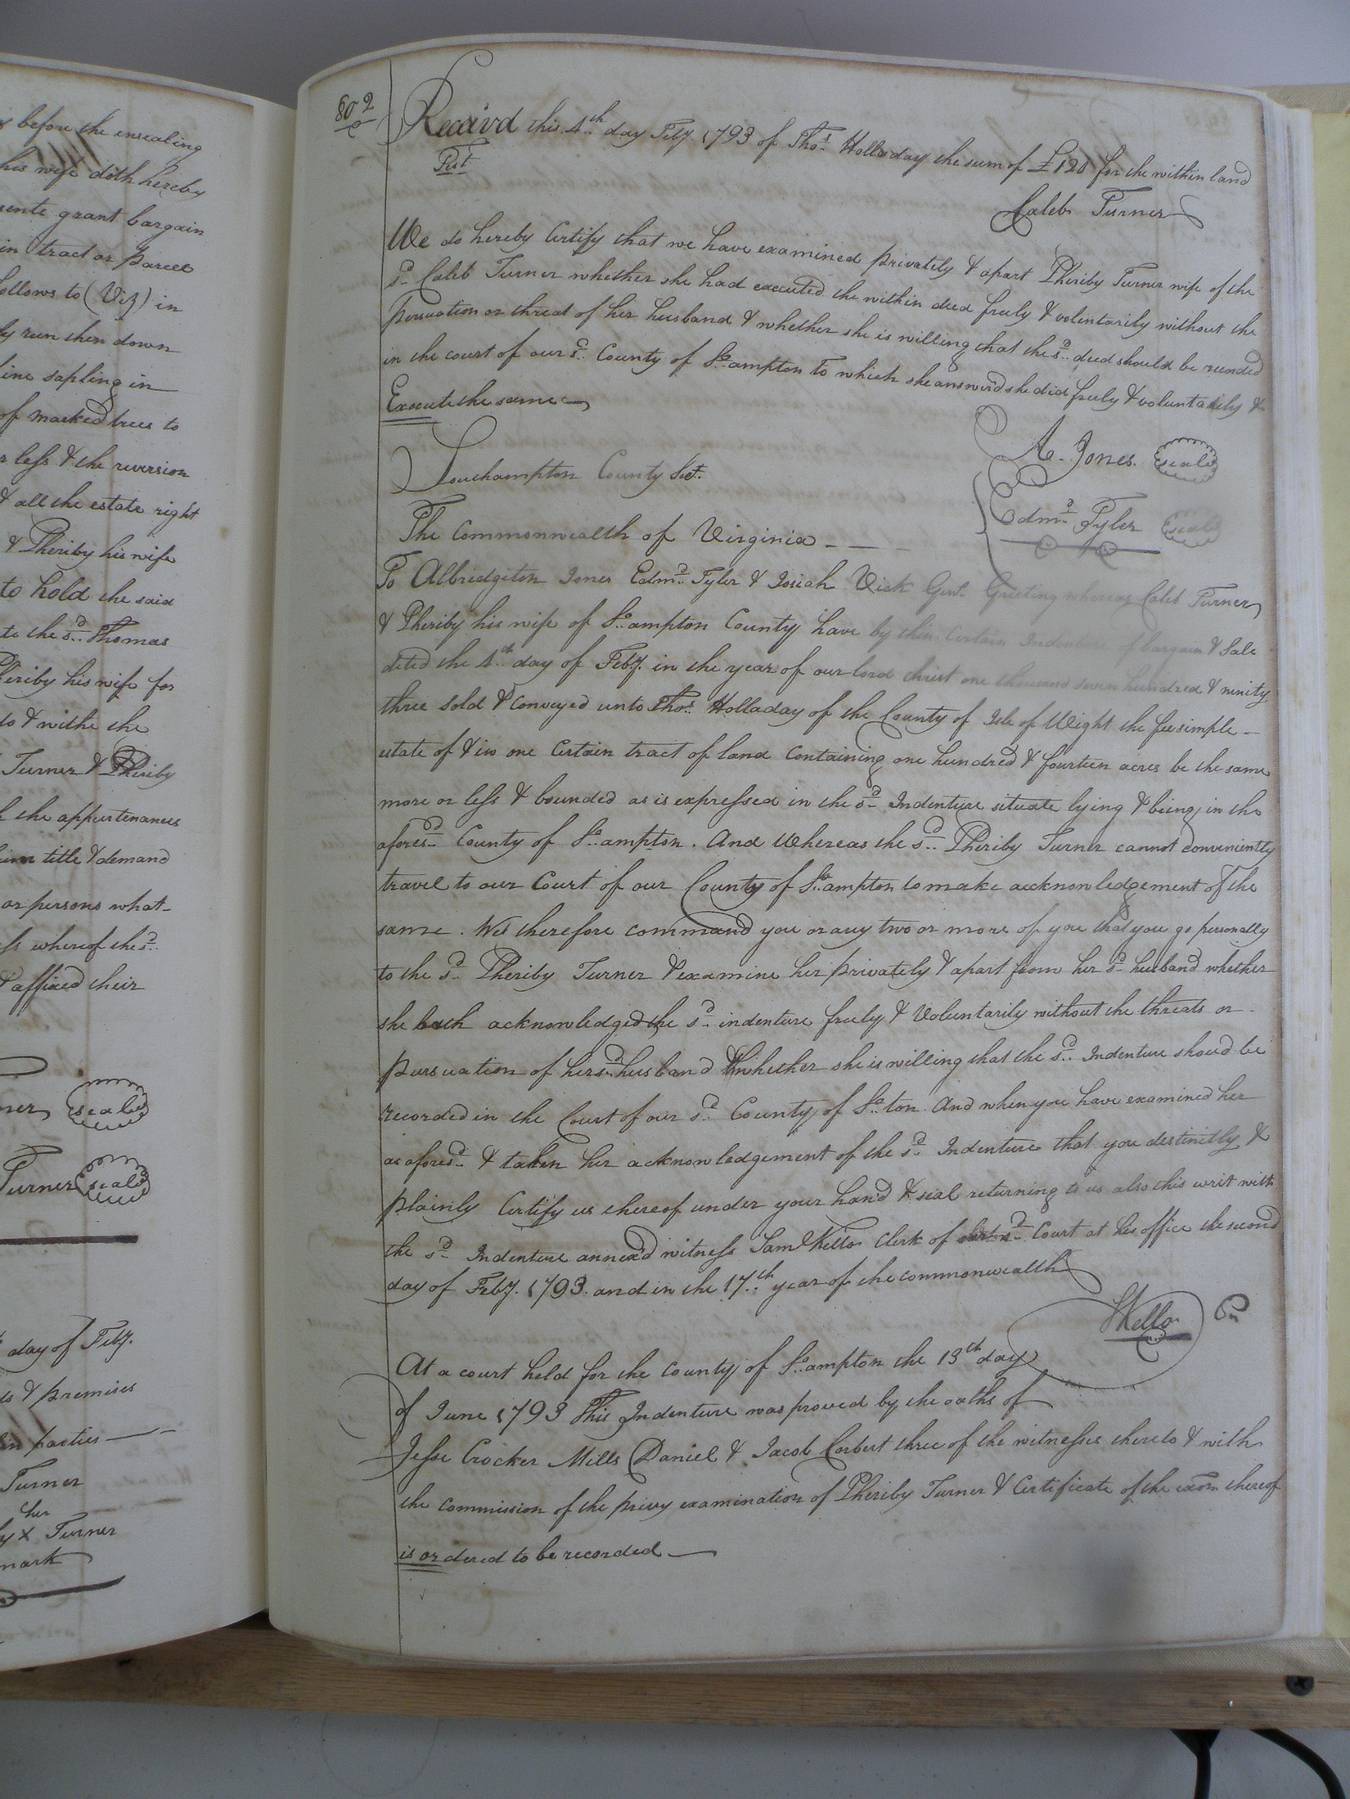 before the ensealing
his wife doth hereby
grant bargain
in tract or parcel
follows to (Viz) in
run then down
sapling in
of marked trees to
less & the reversion
& all the estate right
& Pheriby his wife
to hold the said
to the sd. Thomas
Pheriby his wife for
to & withe the
Turner & Pheriby
the appurtenances
title & demand
or persons what-
whereof the sd.
& affixed their
seal
Turner seal
day of Feby.
& premises
parties
Turner
her
X Turner
mark
802
Receivd this 4th day Feby. 1793 of Thos. Holladay the sum of £120 for the within land
Caleb Turner
We do hereby Certify that we have examined privately & apart Pheriby Turner wife of the
sd. Caleb Turner whether she had executed the within deed freely & voluntarily without the
persuation or threat of her husband & whether she is willing that the sd. deed should be
in the court of our sd. County of So.ampton to which she answerd she did freely & voluntarily &
Execute the same
A. Jones. seal
Southampton County Sct.
Edmd. Tyler seal
The Commonwealth of Virginia
To Albridgton Jones Edmd. Tyler & Josiah Vick Gent. Greeting whereas Caleb Turner
& Pheriby his wife of So.ampton County have by their Certain Indenture of bargain & Sale
dated the 4th day of Feby. in the year of our lord christ one thousand seven hundred & ninity
three sold & Conveyed unto Thos. Holladay of the County of Isle of Wight the feesimple
estate of & in one Certain tract of land Containing one hundred & fourteen acres be the same
more or less & bounded as is expressed in the sd. Indenture situate lying & being in the
aforesd. County of So.ampton. And Whereas the sd. Pheriby Turner cannot conveniently
travel to our Court of our County of So.ampton to make acknowledgement of the
same. We therefore command you or any two or more of you that you go personally
to the sd. Pheriby Turner & examine her privately & apart from her sd. husband whether
she hath acknowledged the sd. indenture freely & Voluntarily without the threats or
pursuation of her sd. husband & whether she is willing that the sd. Indenture should be
recorded in the Court of our sd. County of So.ton And when you have examined her
as aforesd. & taken her acknowledgement of the sd. Indenture that you destinctly &
plainly Certify us thereof under your hand & seal returning to us also this writ with
the sd. Indenture annexd witness Saml Kello Clerk of sd. Court at his office the second
day of Feby. 1793. and in the 17th year of the commonwealth
SKello Cn
At a court held for the county of So.ampton the 13th day
of June 1793 This Indenture was proved by the oaths of
Jesse Crocker Mills Daniel & Jacob Corbert three of the witnesses thereto & with
the commission of the privy examination of Pheriby Turner & Certificate of the exon thereof
is ordered to be recorded